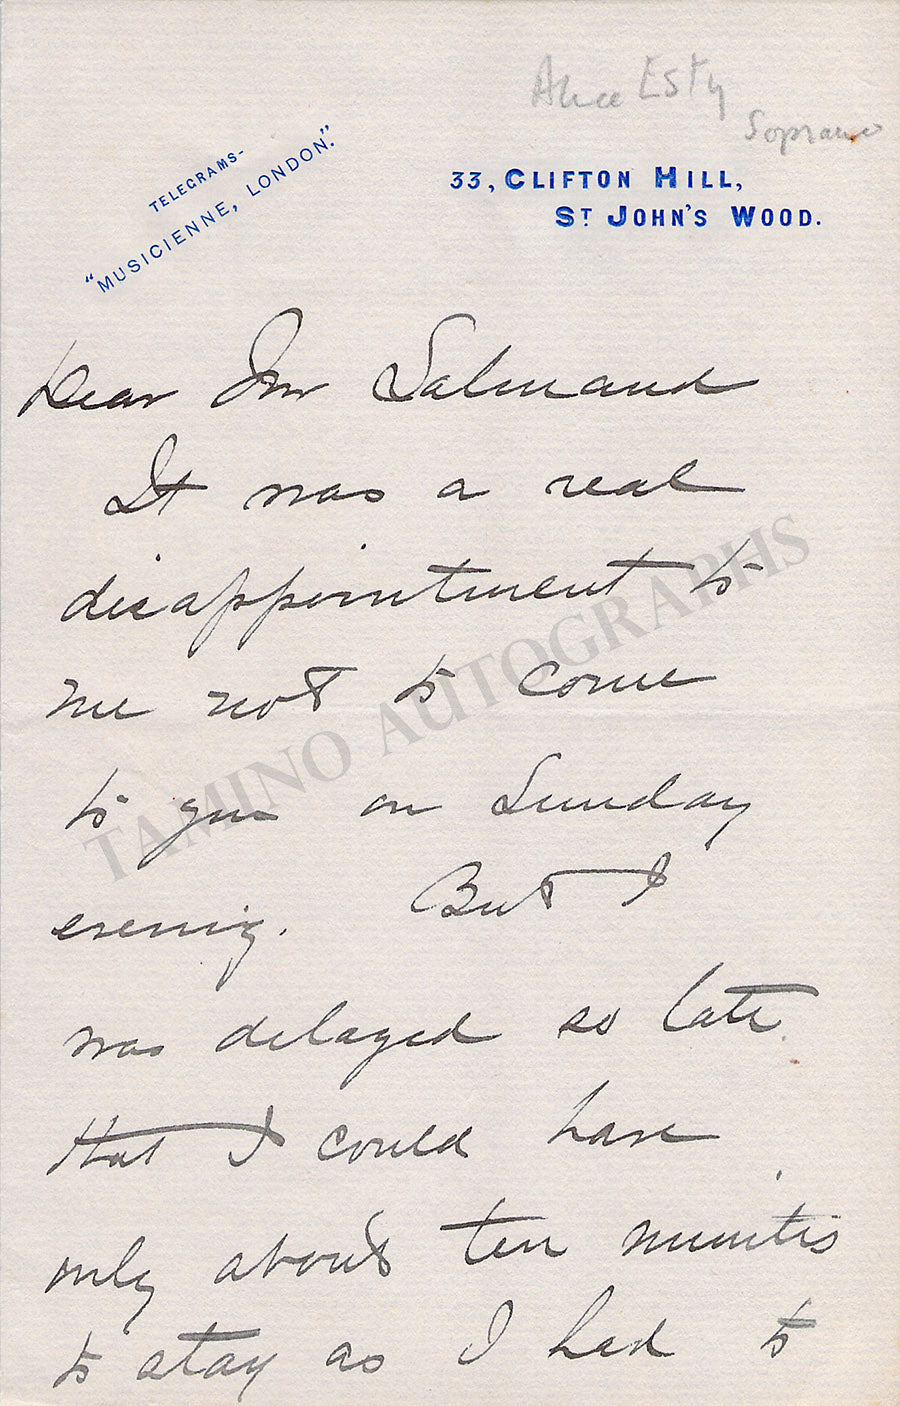 Alice Esty
Soprano
TELEGRAMS-
"MUSICIENNE, LONDON."
33, CLIFTON HILL,
ST JOHN'S WOOD.
Dear Mr Salmond
It was a real
disappointment to
me not to come
to you on Sunday
evening. But I
was delayed so late
that I could have
only about ten minutes
to stay as I had to
TAMINO AUTOGRAPHS